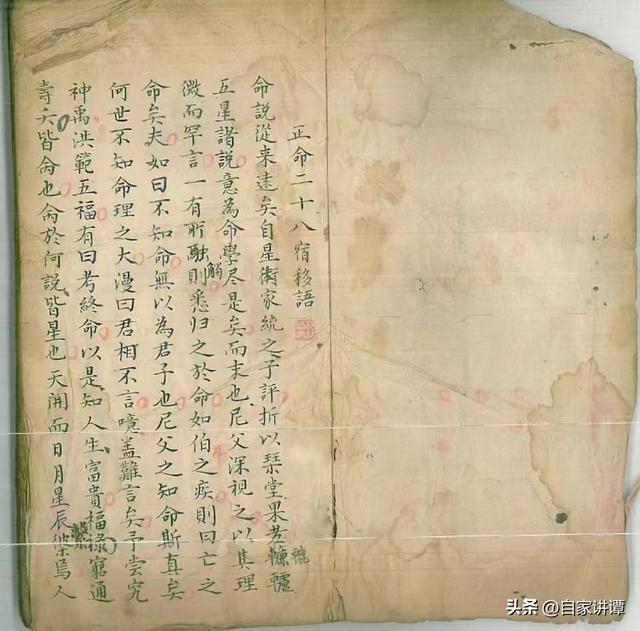 正命二十八宿移語
命說從来遠矣自星術家統之子評折以琹堂果老
五星諸說意為命學尽是矣而末也尼父深視之以其理
微而罕言一有所融則悉归之於命如伯之疾則曰亡之
觸
命矣夫如曰不知命無以為君子也尼父之知命斯真矣
何世不知命理之大漫曰君相不言噫盖難言矣予尝究
神禹洪範五福有曰考終命以是知人生富貴福禄窮通
壽夭皆命也命於何説皆星也天開而日月星辰焉人
繫
头条 @自家讲谭